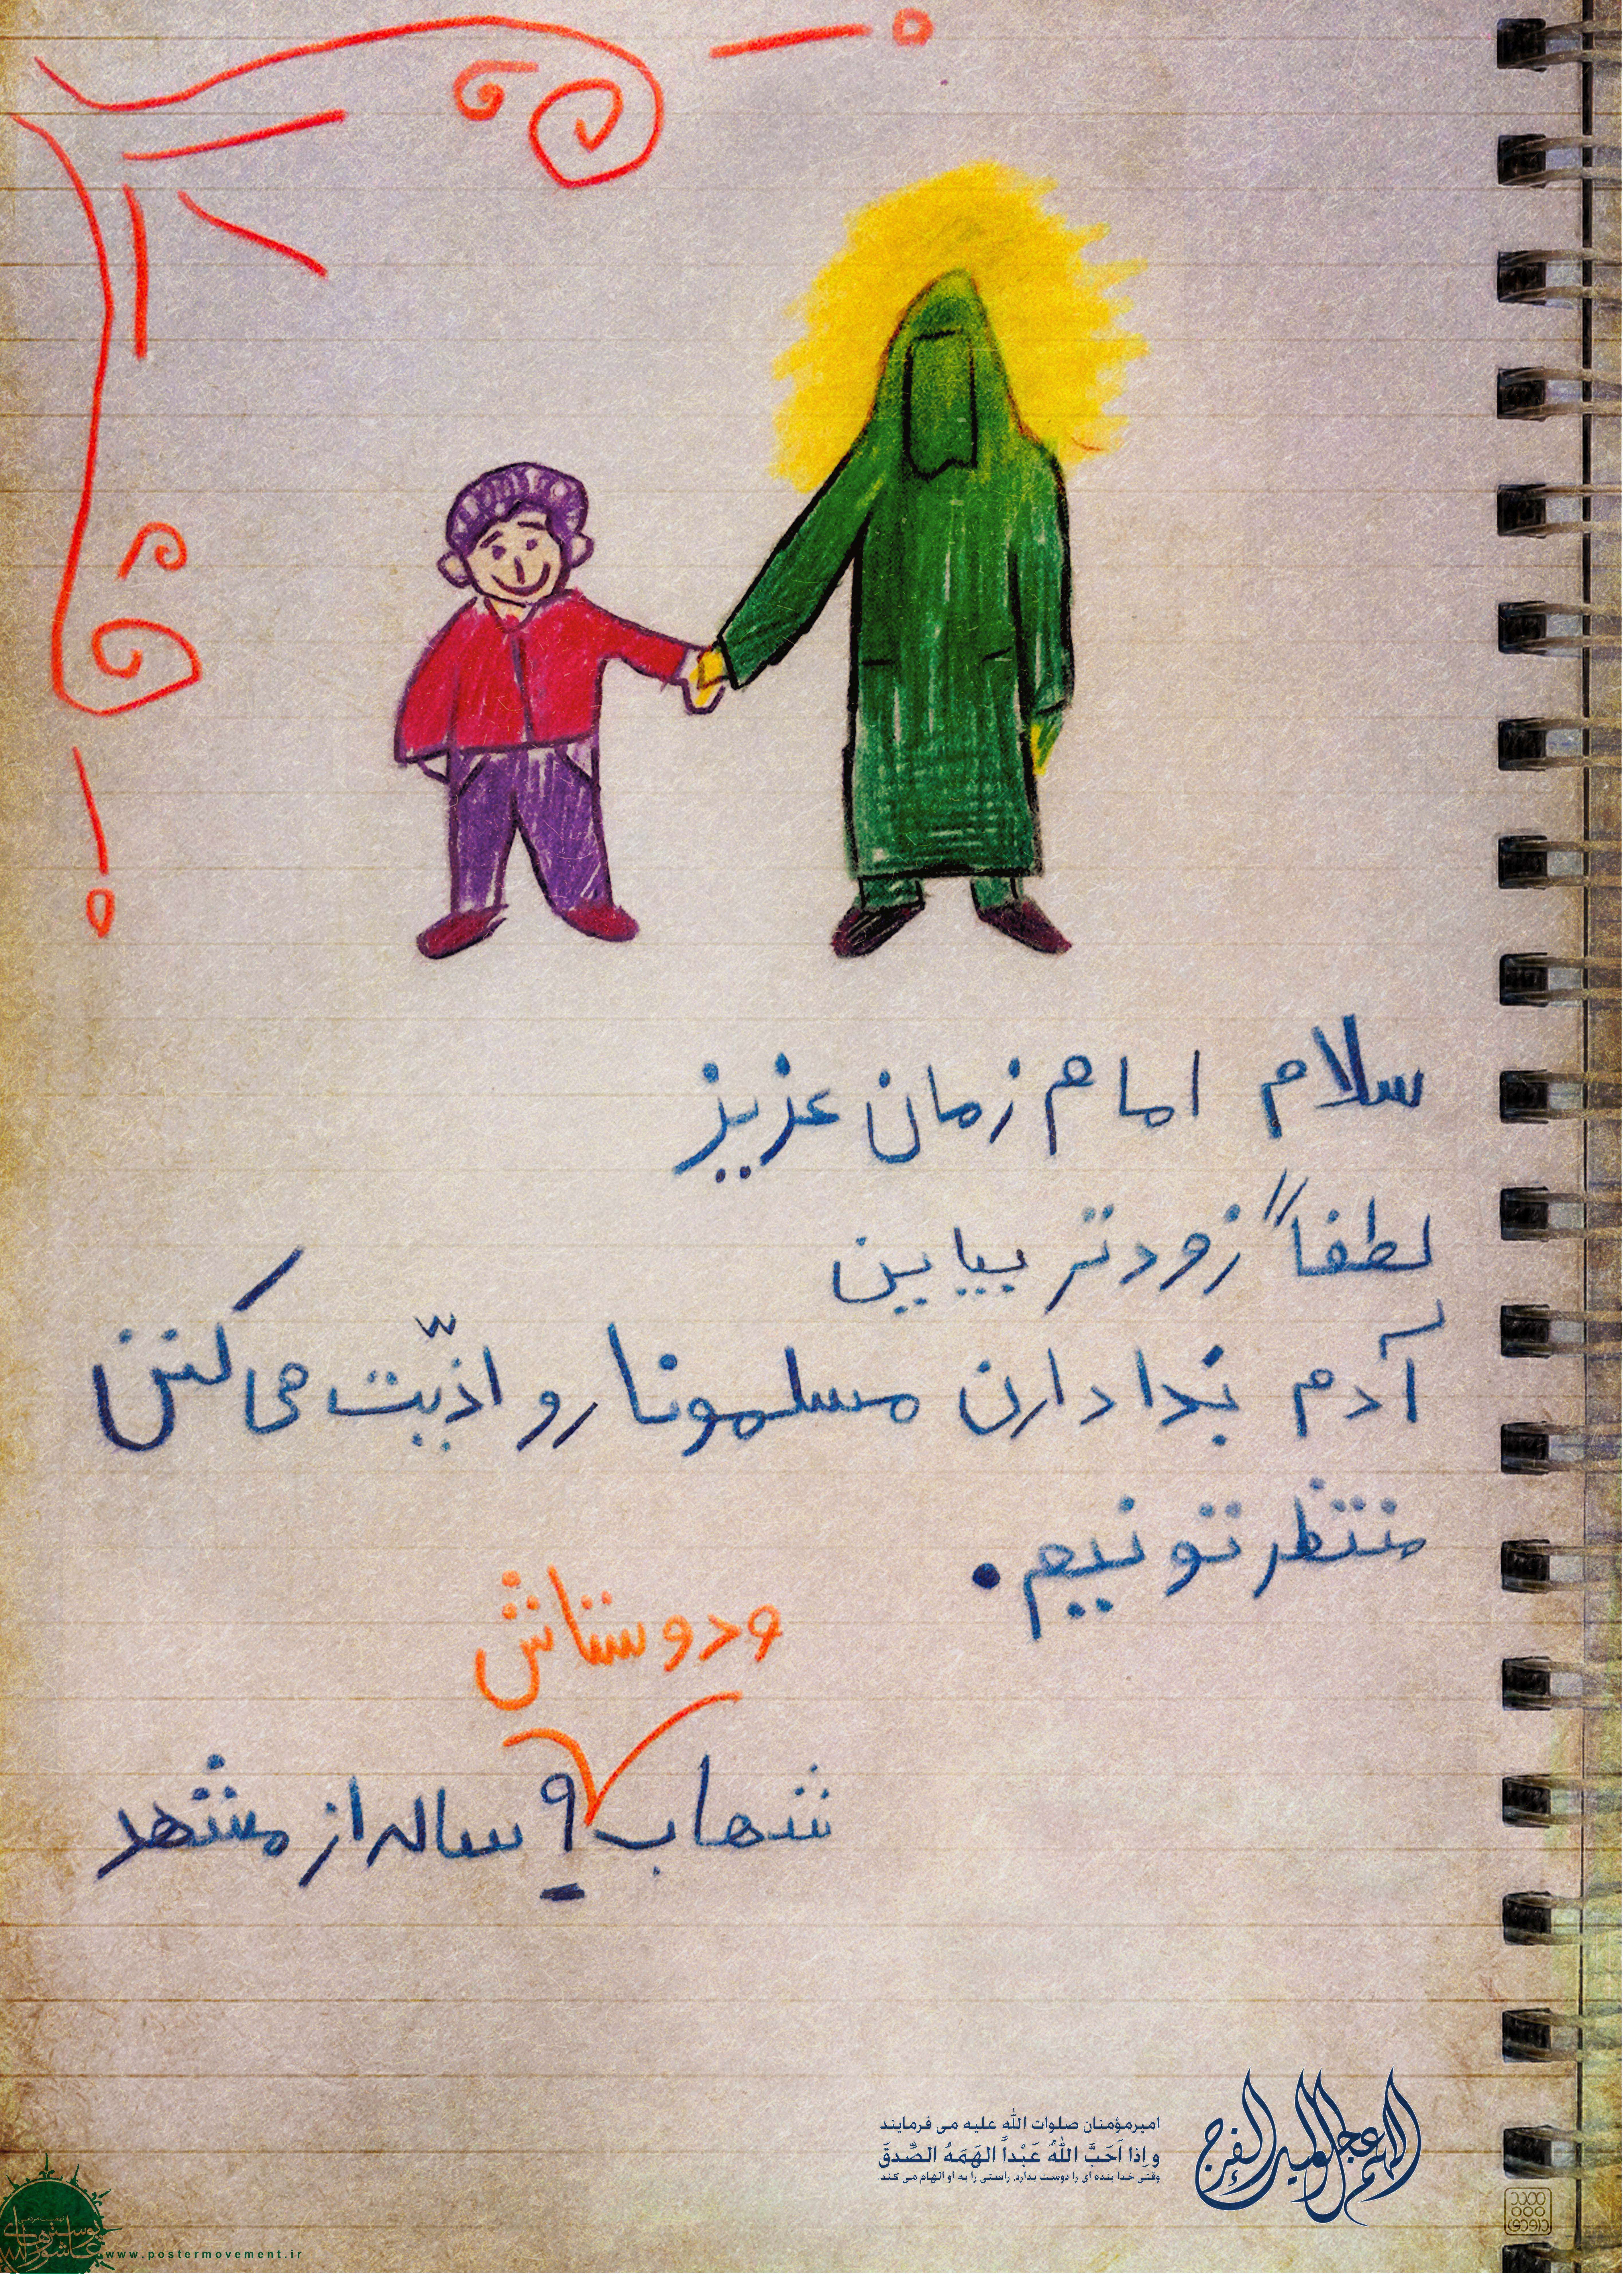 سلام امام زمان عزیز
لطفاً زودتر بیایین
آدم بَدا دارن مسلمونا رو اذیّت می کنن
منتظرتونییم.
و دوستاش
شهاب ۹ ساله از مشهد
اللهم عجل لولیک الفرج
امیرمؤمنان صلوات الله علیه می فرمایند
و اِذا اَحَبَّ اللهُ عَبْداً الهَمَهُ الصِّدقَ
وقتی خدا بنده ای را دوست بدارد، راستی را به او الهام می کند
www.postermovement.ir